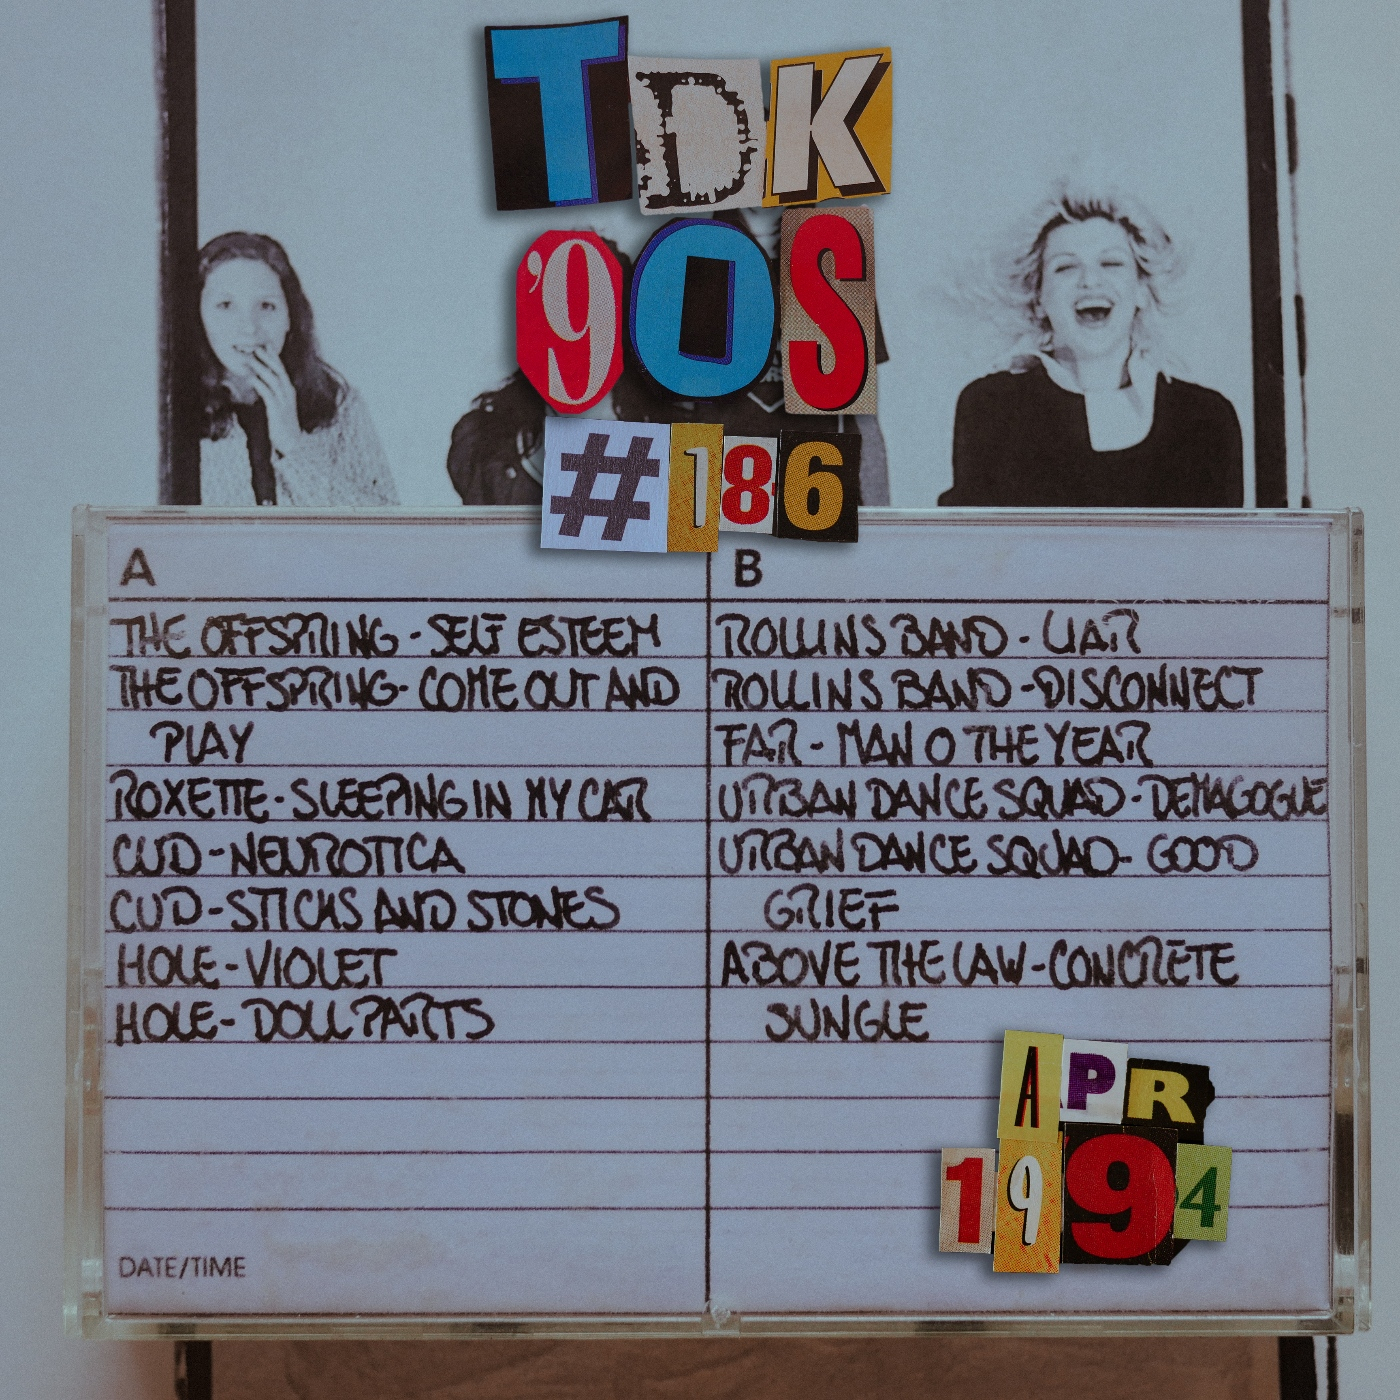 TDK
'90S
#186
A
THE OFFSPRING - SELF ESTEEM
THE OFFSPRING - COME OUT AND
PLAY
ROXETTE - SLEEPING IN MY CAR
CUD - NEUROTICA
CUD - STICKS AND STONES
HOLE - VIOLET
HOLE - DOLL PARTS
DATE/TIME
B
ROLLINS BAND - LIAR
ROLLINS BAND - DISCONNECT
FAR - MAN O THE YEAR
URBAN DANCE SQUAD - DEMAGOGUE
URBAN DANCE SQUAD - GOOD
GRIEF
ABOVE THE LAW - CONCRETE
JUNGLE
APR
1994